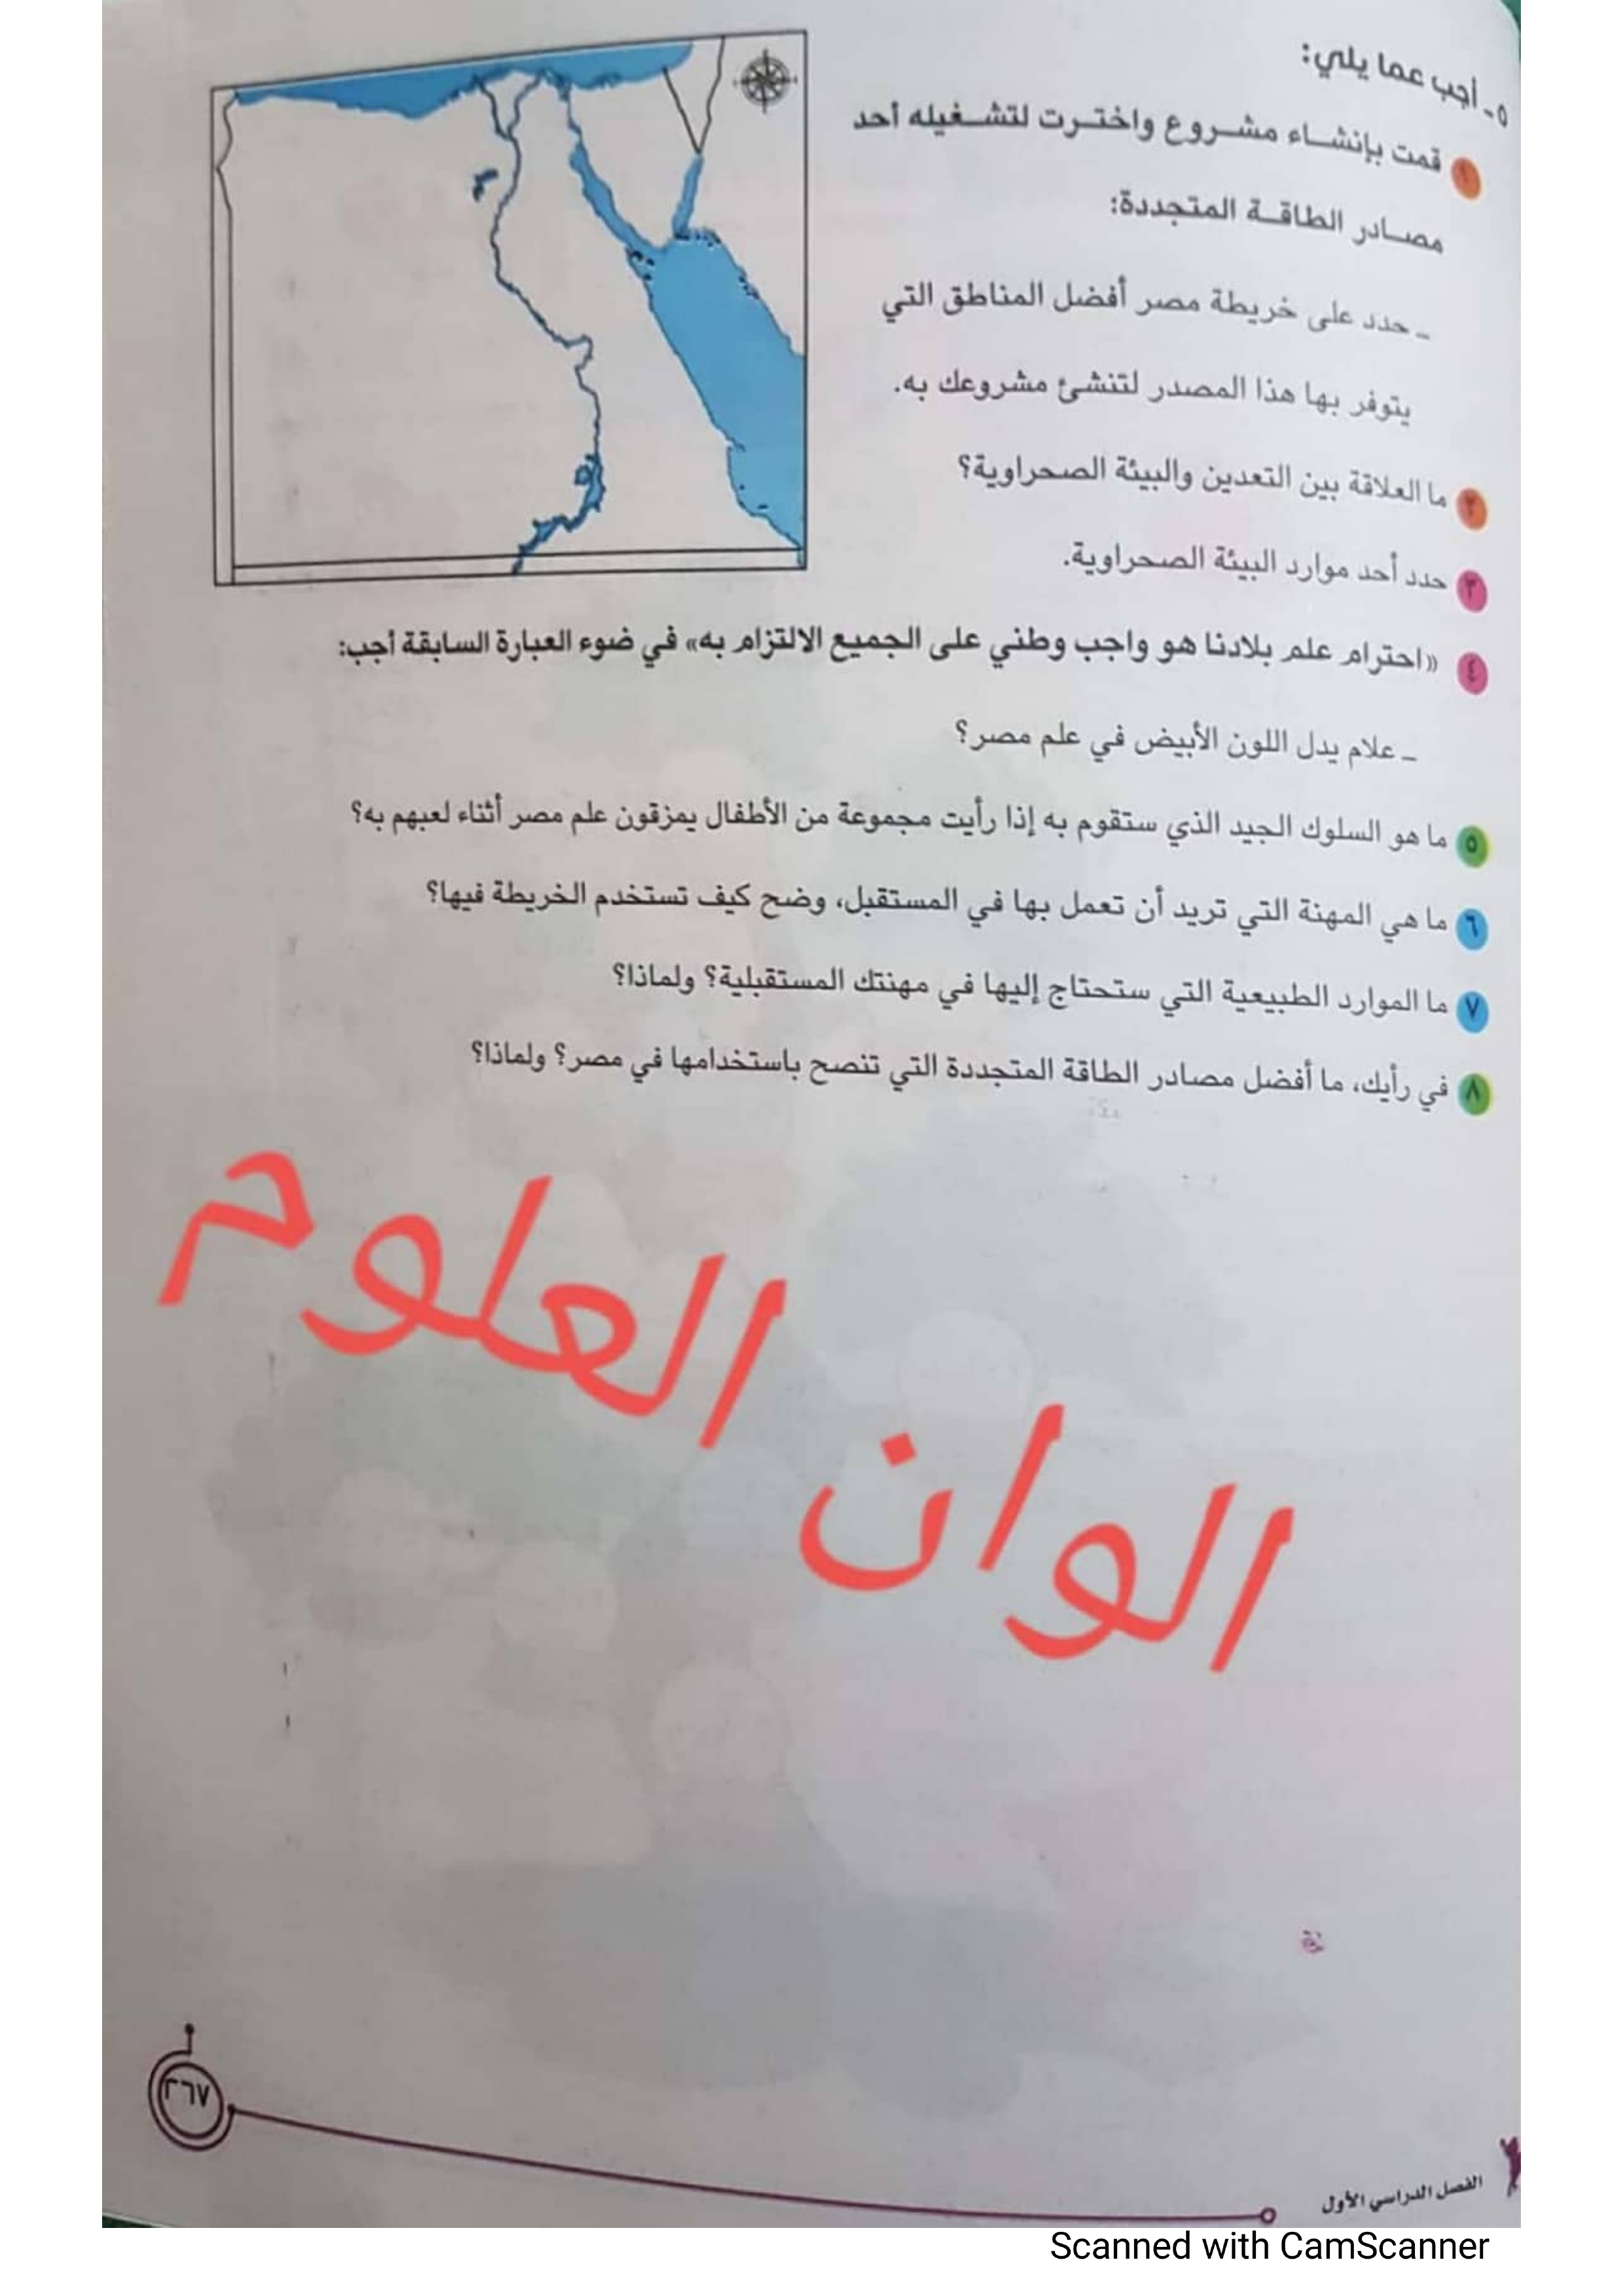 ٥- أجب عما يلي:
١ قمت بإنشاء مشروع واخترت لتشغيله أحد
مصادر الطاقة المتجددة:
- حدد على خريطة مصر أفضل المناطق التي
يتوفر بها هذا المصدر لتنشئ مشروعك به.
٢ ما العلاقة بين التعدين والبيئة الصحراوية؟
٣ حدد أحد موارد البيئة الصحراوية.
٤ «احترام علم بلادنا هو واجب وطني على الجميع الالتزام به» في ضوء العبارة السابقة أجب:
- علام يدل اللون الأبيض في علم مصر؟
٥ ما هو السلوك الجيد الذي ستقوم به إذا رأيت مجموعة من الأطفال يمزقون علم مصر أثناء لعبهم به؟
٦ ما هي المهنة التي تريد أن تعمل بها في المستقبل، وضح كيف تستخدم الخريطة فيها؟
٧ ما الموارد الطبيعية التي ستحتاج إليها في مهنتك المستقبلية؟ ولماذا؟
٨ في رأيك، ما أفضل مصادر الطاقة المتجددة التي تنصح باستخدامها في مصر؟ ولماذا؟
الوان العلوم
٢٦٧
الفصل الدراسي الأول
Scanned with CamScanner